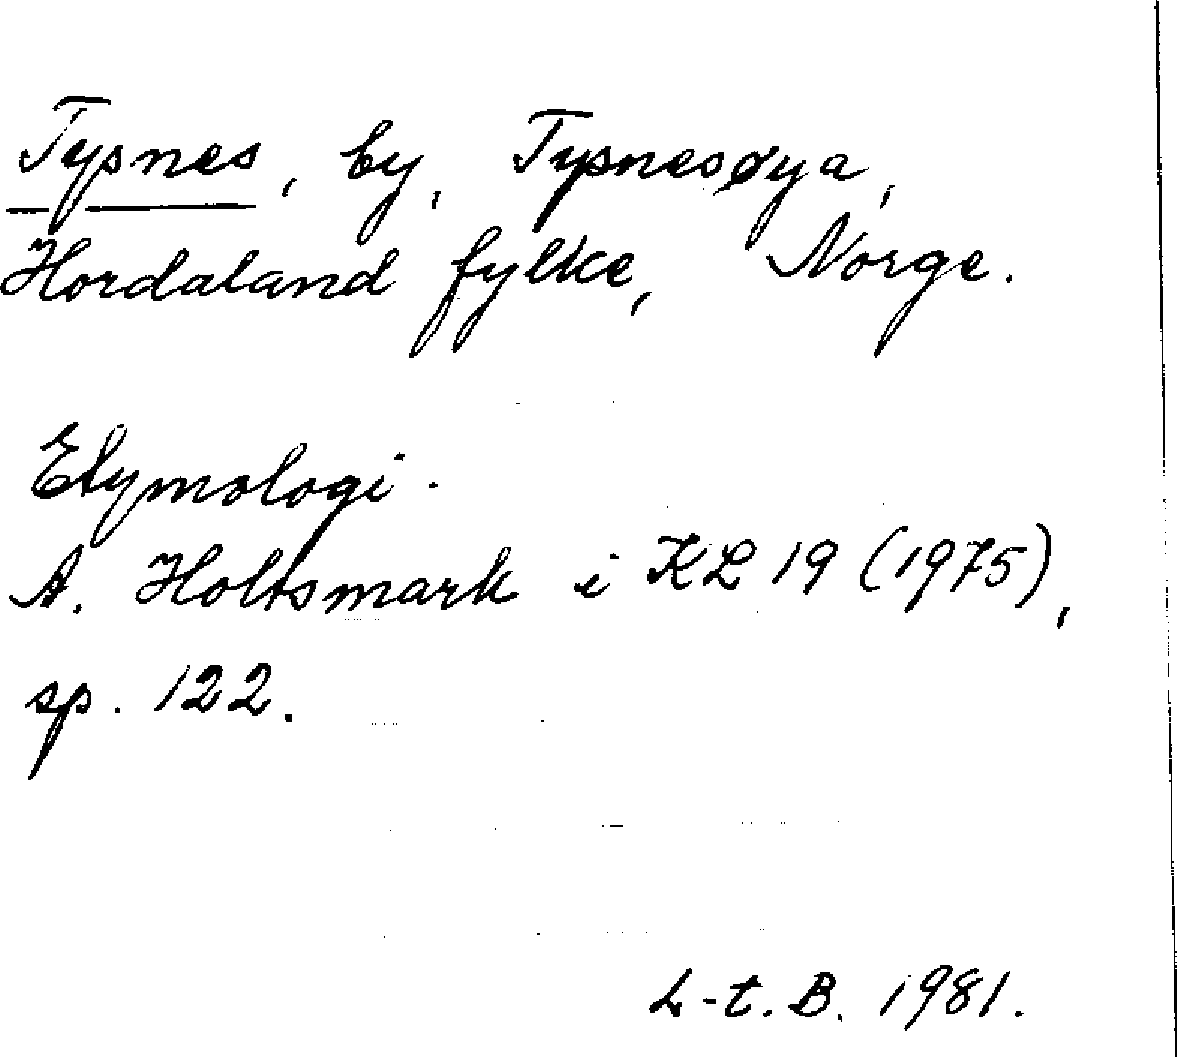 Tysnes, by, Tysnesøya,
Hordaland fylke, Norge.
Etymologi.
A. Holtsmark i KL 19 (1975),
sp. 122.
L-t. B. 1981.